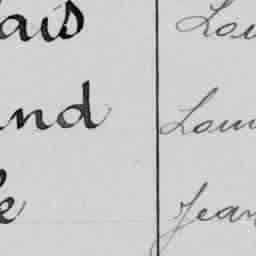 ais Lou
and Lou
e Jean